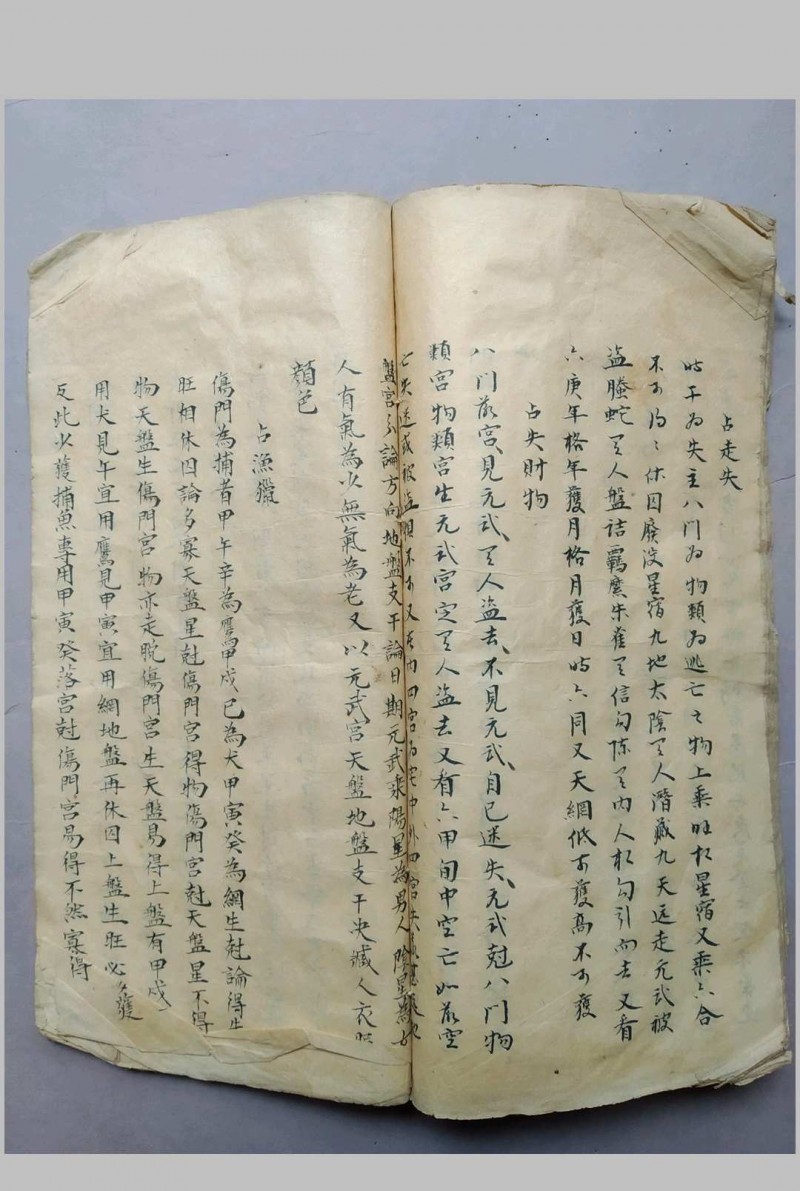 占走失
時干為失主八门為物類為逃亡之物上乘旺相星宿又乘六合
不可得、休囚廢没星宿九地太陰有人潛藏九天远走元武被
盜螣蛇有人盤詰羈縻朱雀有信勾陈有内人相勾引而去又看
六庚年格年獲月格月獲日時六同又天網低可獲高不可獲
占失財物
八门落宫見元武有人盜去不見元武自己迷失元武尅八门物
類宫物類宫生元武宫定有人盜去又看六甲旬中空亡如落空
亡失迷或被盜俱不可又
盤宫分論方向地盤支干論日期元武乘陽星為男人陰星為女
人有氣為少無氣為老又以元武宫天盤地盤支干决贓人衣服
顔色
占漁獵
傷門為捕者甲午辛為鷹甲戌己為犬甲寅癸為網生尅論得失
旺相休囚論多寡天盤星尅傷門宫得物傷門宫尅天盤星不得
物天盤生傷門宫物亦走脱傷門宫生天盤易得上盤有甲戌
用犬見午宜用鷹見甲寅宜用網地盤再休囚上盤生旺必多獲
反此少獲捕魚專用甲寅癸落宫尅傷門宫易得不然寡得